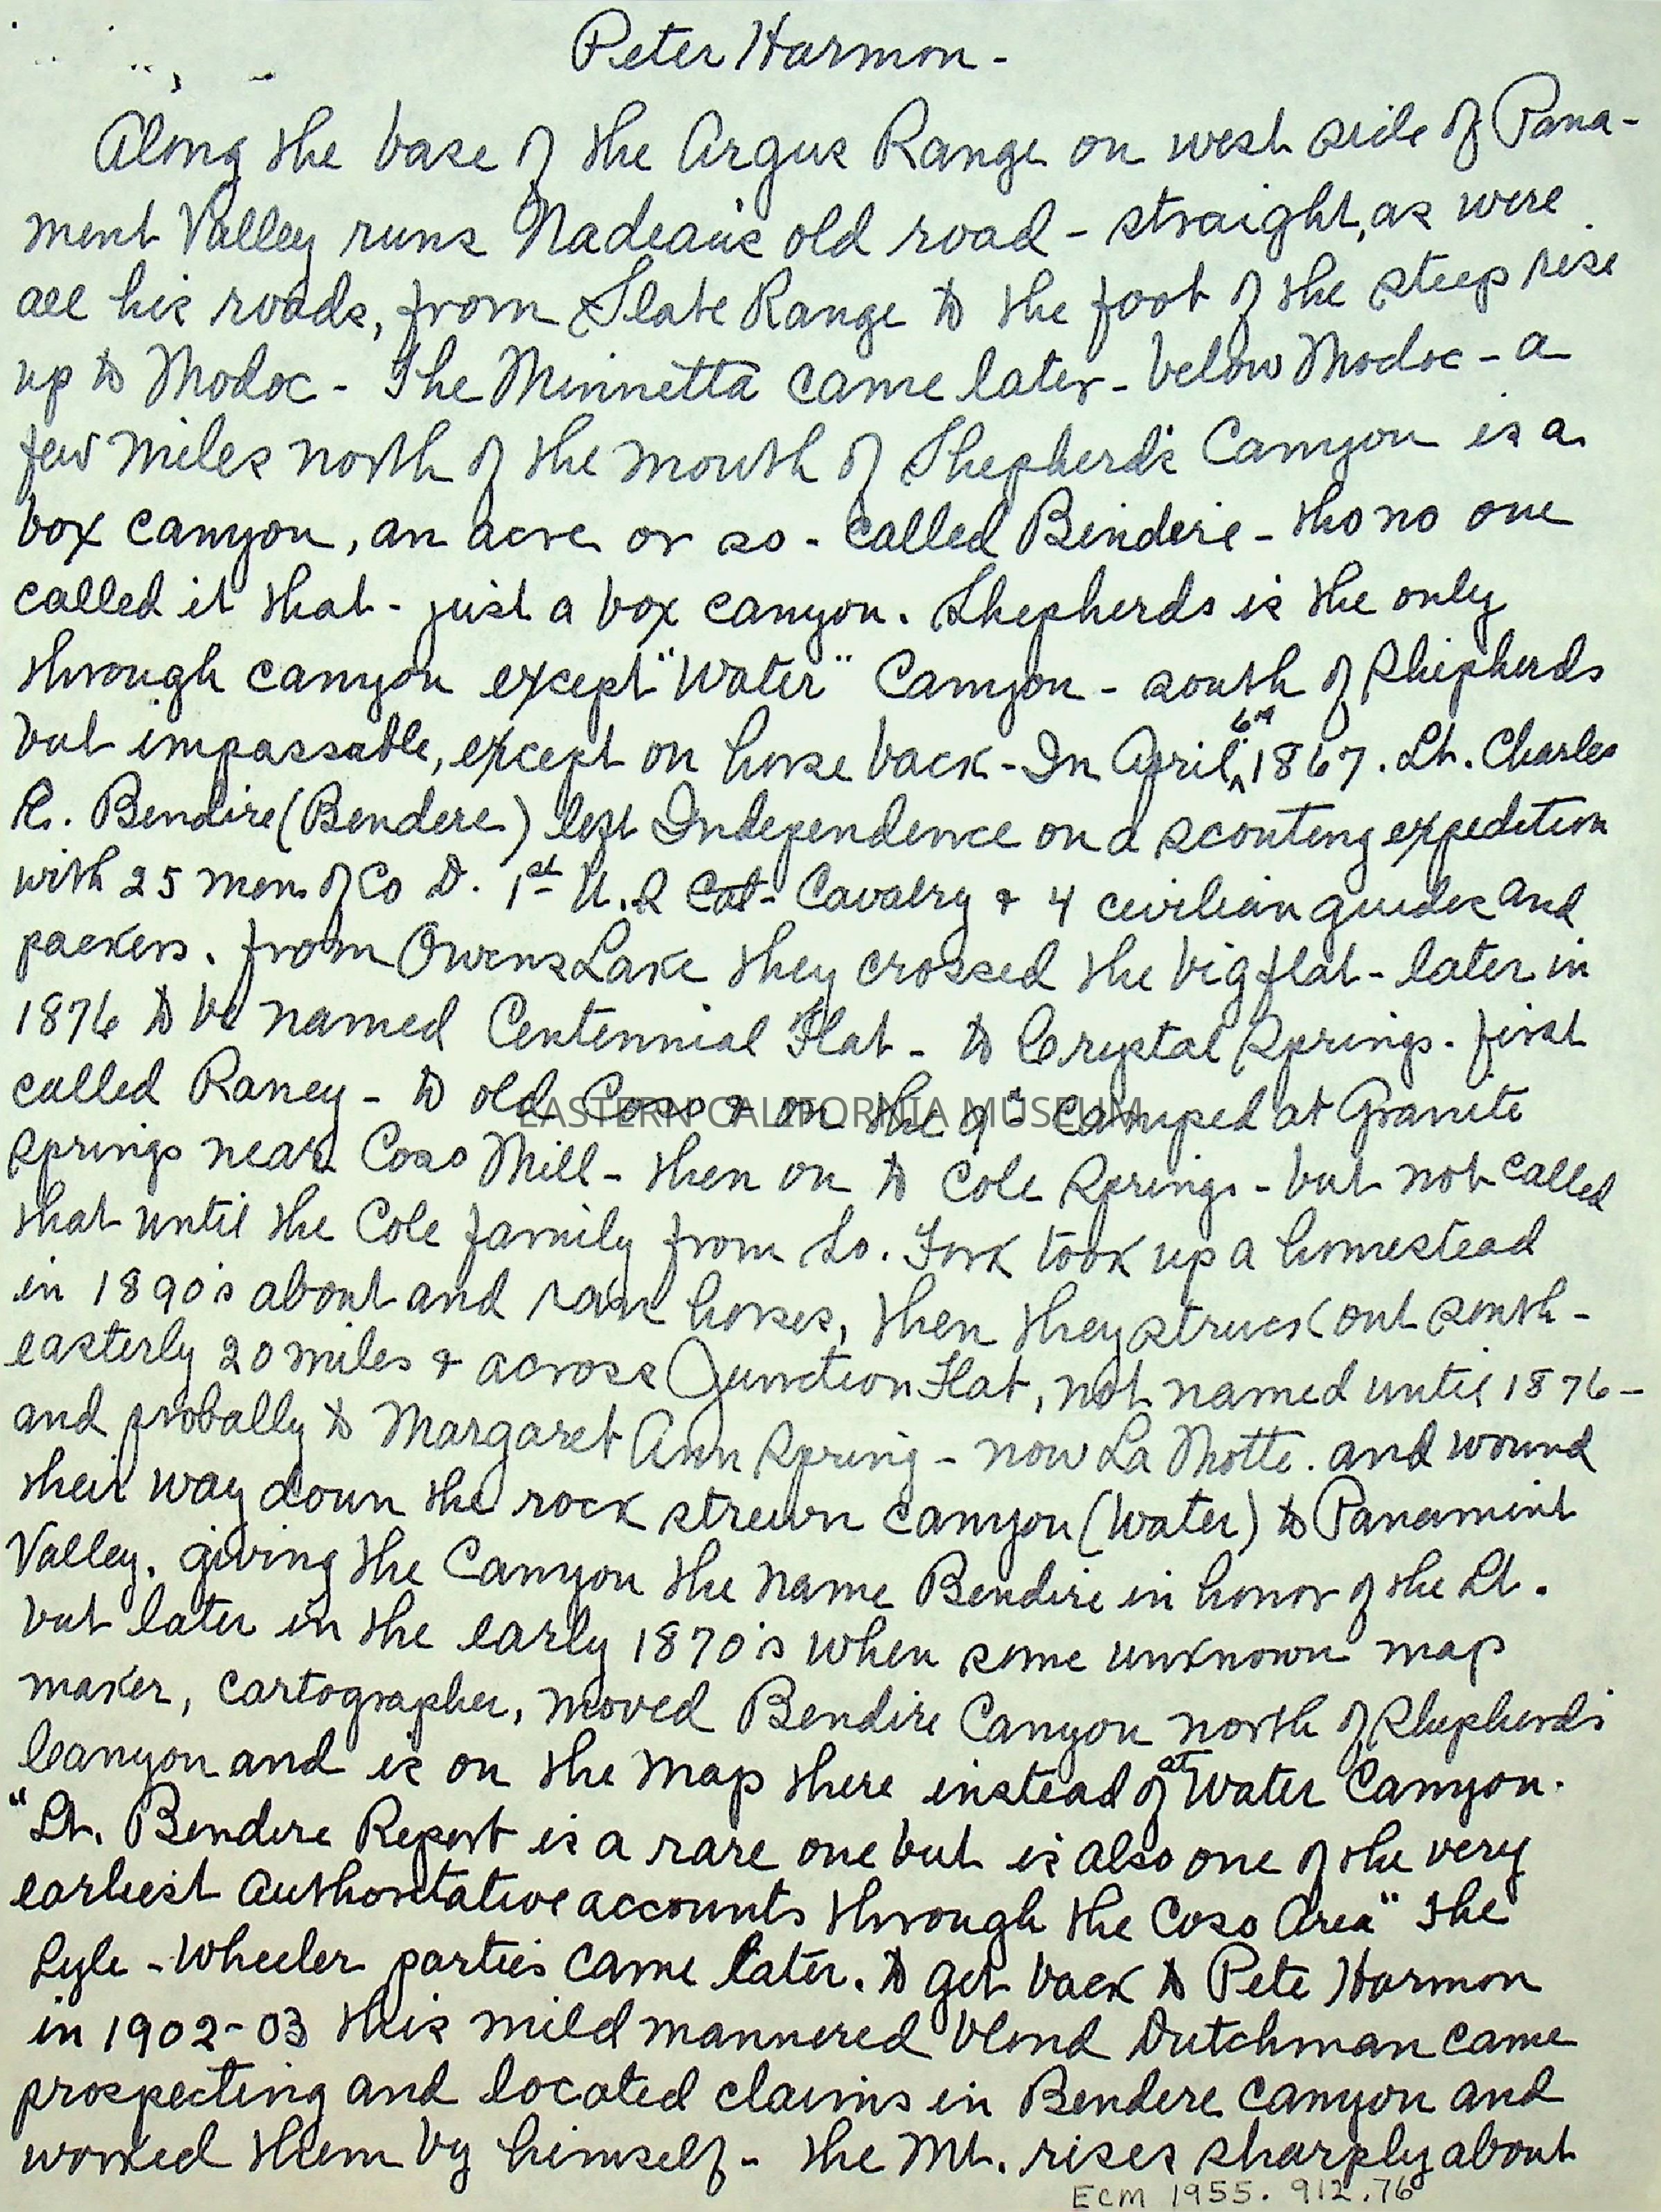 Peter Harmon -
Along the base of the Argus Range on west side of Pana-
ment Valley runs Nadeau's old road - straight, as were
all his roads, from Slate Range to the foot of the steep rise
up to Modoc - The Minnetta came later - below Modoc - a
few miles north of the mouth of Shepherd's Canyon is a
box canyon, an acre or so - called Bindere - tho no one
called it that - just a box canyon. Shepherds is the only
through canyon except "Water" Canyon - south of Shepherds
but impassable, except on horse back - In April 6th 1867. Lt. Charles
R. Bendire (Bendere) left Independence on a scouting expedition
with 25 men of Co D. 1st U.S Cat- Cavalry & 4 civilian guides and
packers. from Owens Lake they crossed the big flat - later in
1876 to be named Centennial Flat - to Crystal Springs - first
called Raney - to old Coso & on the 9th camped at Granite
EASTERN CALIFORNIA MUSEUM
Springs near Coso Mill - then on to Cole Springs - but not called
that until the Cole family from So. Fork took up a homestead
in 1890's about and raise horses, then they struck out south-
easterly 20 miles & across Junction Flat, not named until 1876 -
and probally to Margaret Ann Spring - now La Motte. and wound
their way down the rock strewn canyon (Water) to Panamint
Valley. giving the Canyon the name Bendire in honor of the Lt.
but later in the early 1870's when some unknown map
maker, cartographer, moved Bendire Canyon north of Shepherd's
Canyon and is on the map there instead of at Water Canyon.
"Lt. Bendere Report is a rare one but is also one of the very
earliest authoritative accounts through the Coso Area" The
Lyle - Wheeler parties came later. to get back to Pete Harmon
in 1902-03 this mild mannered blond Dutchman came
prospecting and located claims in Bendere canyon and
worked them by himself - the Mt. rises sharply about
ECM 1955. 912.76